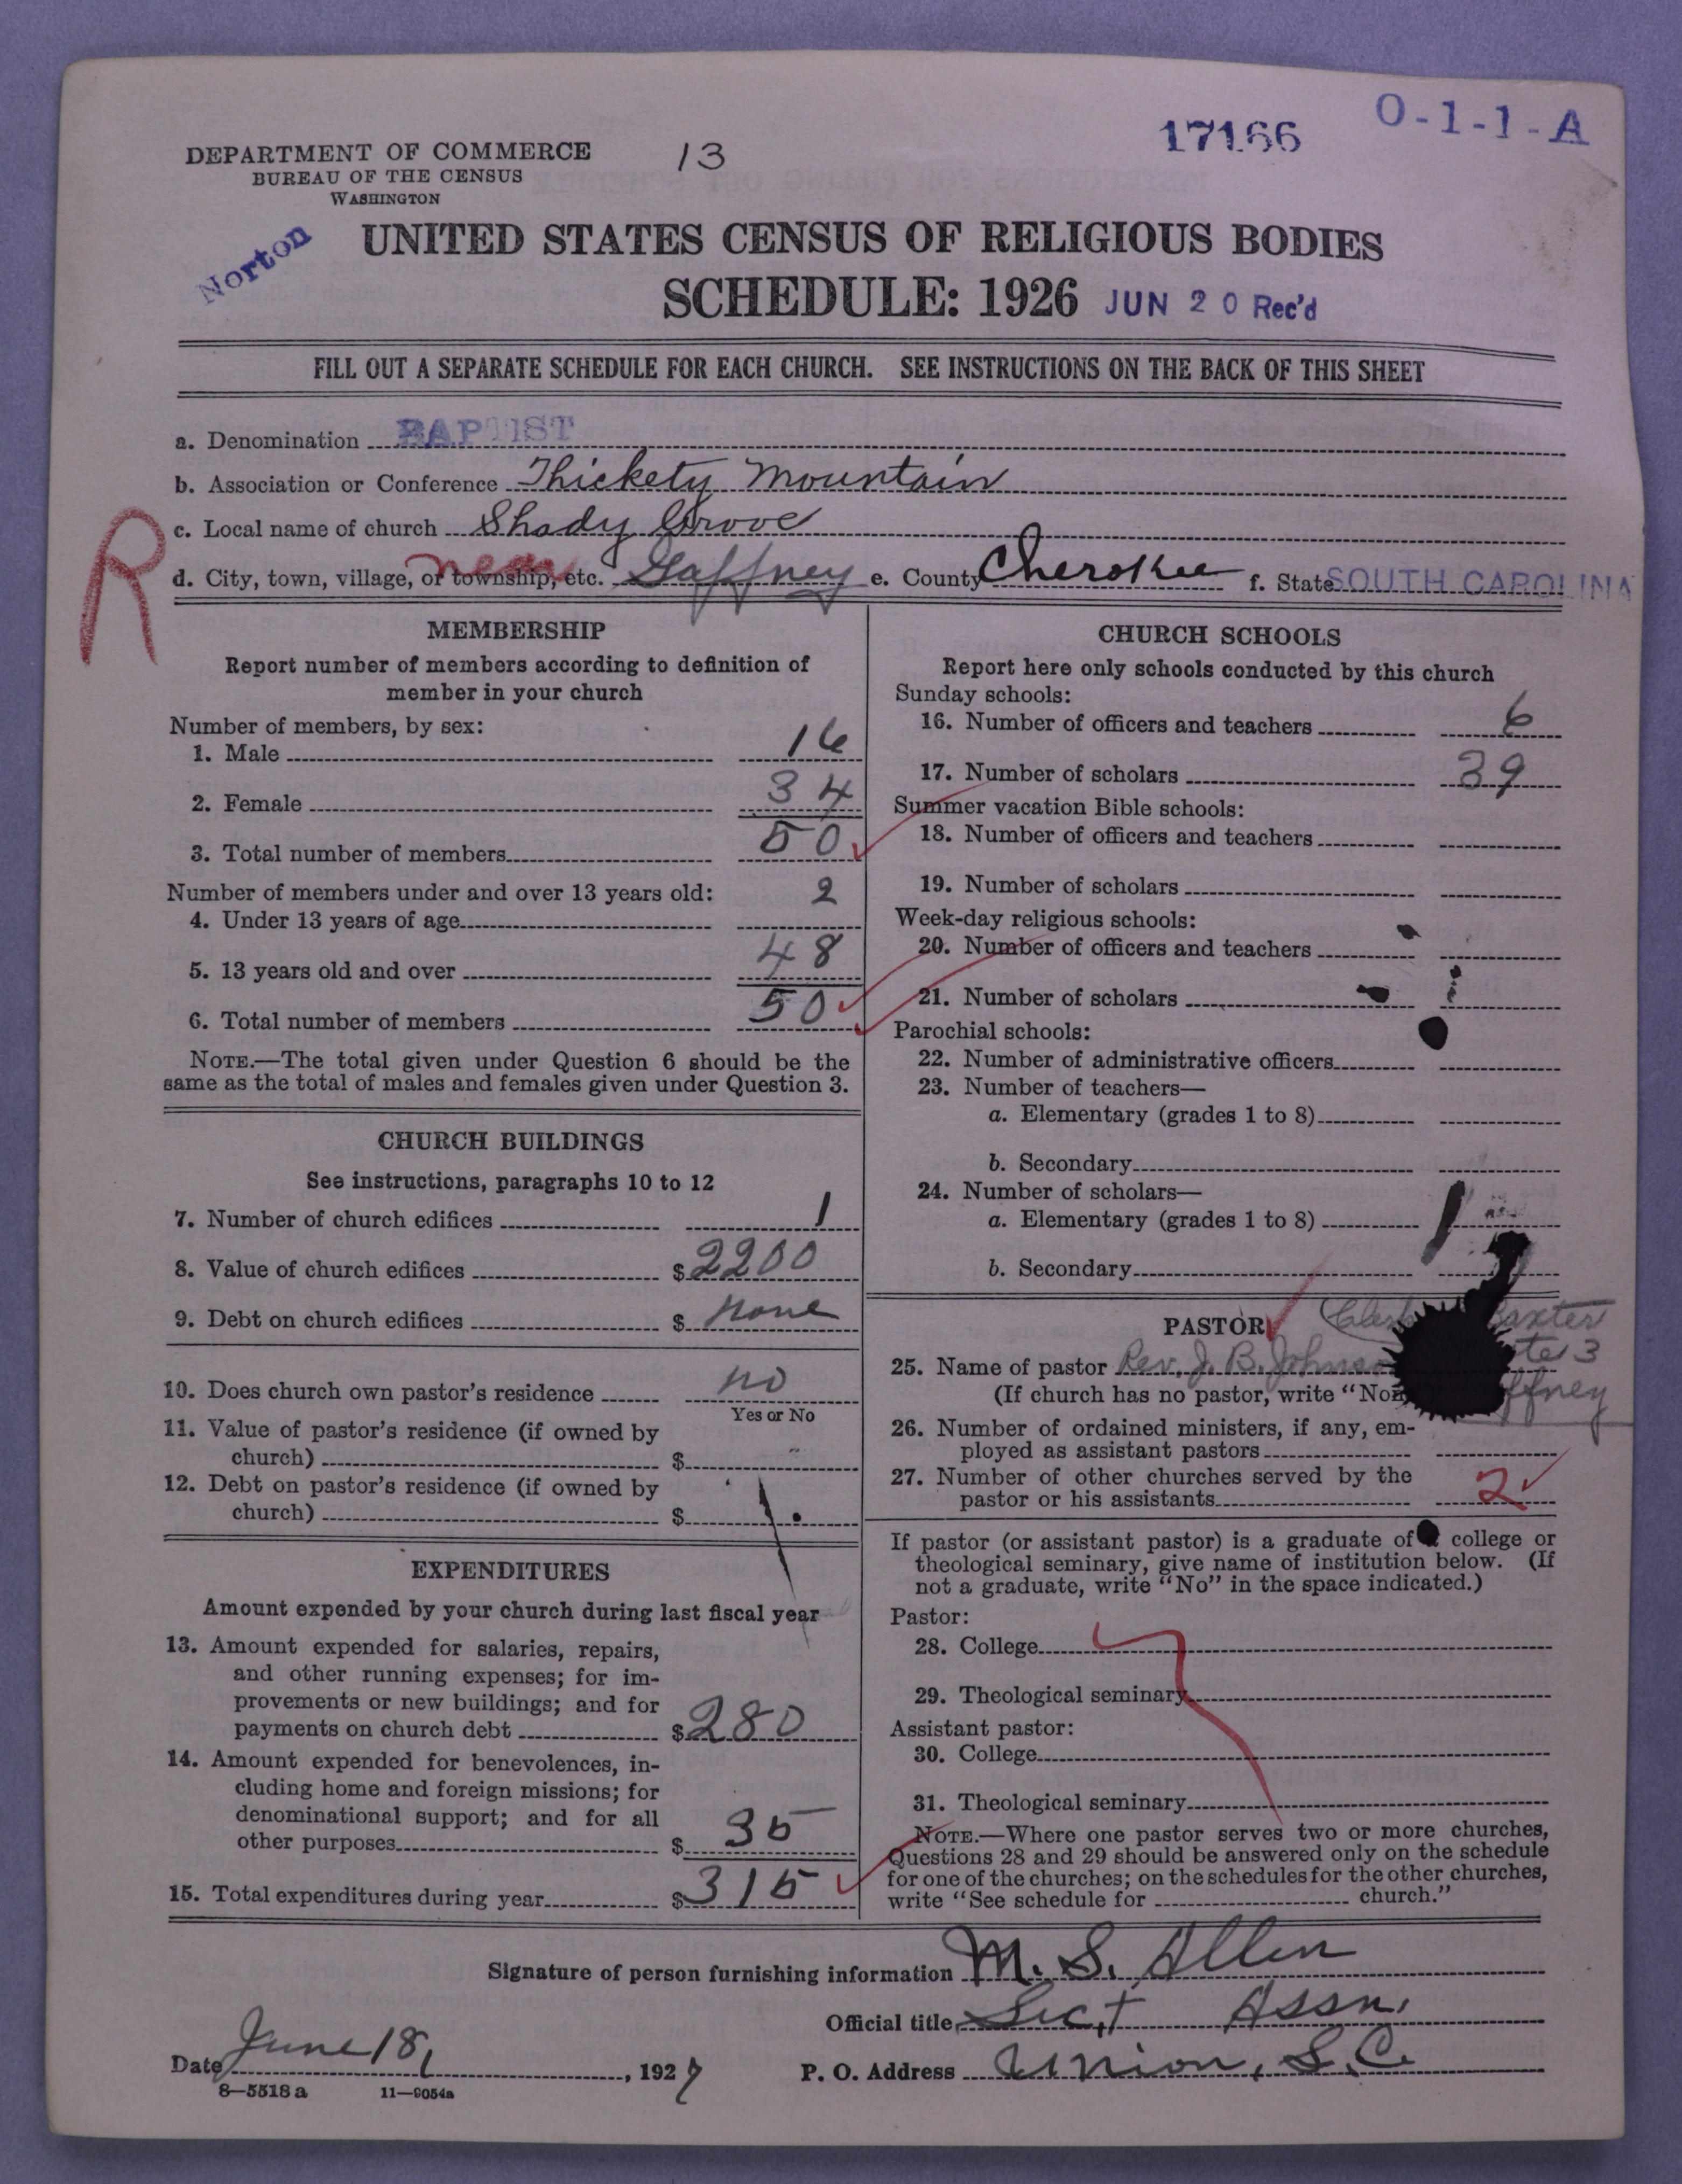 DEPARTMENT OF COMMERCE
BUREAU OF THE CENSUS
WASHINGTON
13
17166
O-1-1-A
Norton
UNITED STATES CENSUS OF RELIGIOUS BODIES
SCHEDULE: 1926 JUN 20 Rec'd
FILL OUT A SEPARATE SCHEDULE FOR EACH CHURCH. SEE INSTRUCTIONS ON THE BACK OF THIS SHEET
a. Denomination BAPTIST
b. Association or Conference Thickety Mountain
c. Local name of church Shady Grove
R
near
d. City, town, village, or township, etc. Gaffney e. County Cherokee f. State SOUTH CAROLINA
MEMBERSHIP
Report number of members according to definition of
member in your church
Number of members, by sex:
1. Male 16
2. Female 34
3. Total number of members 50
Number of members under and over 13 years old:
4. Under 13 years of age 2
5. 13 years old and over 48
6. Total number of members 50
NOTE.—The total given under Question 6 should be the
same as the total of males and females given under Question 3.
CHURCH BUILDINGS
See instructions, paragraphs 10 to 12
7. Number of church edifices 1
8. Value of church edifices $2200
9. Debt on church edifices $ none
10. Does church own pastor's residence no
Yes or No
11. Value of pastor's residence (if owned by
church) $
12. Debt on pastor's residence (if owned by
church) $
EXPENDITURES
Amount expended by your church during last fiscal year
13. Amount expended for salaries, repairs,
and other running expenses; for im-
provements or new buildings; and for
payments on church debt $280
14. Amount expended for benevolences, in-
cluding home and foreign missions; for
denominational support; and for all
other purposes $ 35
15. Total expenditures during year $315
CHURCH SCHOOLS
Report here only schools conducted by this church
Sunday schools:
16. Number of officers and teachers 6
17. Number of scholars 39
Summer vacation Bible schools:
18. Number of officers and teachers
19. Number of scholars
Week-day religious schools:
20. Number of officers and teachers
21. Number of scholars
Parochial schools:
22. Number of administrative officers
23. Number of teachers—
a. Elementary (grades 1 to 8)
b. Secondary
24. Number of scholars—
a. Elementary (grades 1 to 8)
b. Secondary
PASTOR Baxter
25. Name of pastor Rev. J. B. 3
(If church has no pastor, write "
26. Number of ordained ministers, if any, em-
ployed as assistant pastors
27. Number of other churches served by the
pastor or his assistants 2
If pastor (or assistant pastor) is a graduate of college or
theological seminary, give name of institution below. (If
not a graduate, write "No" in the space indicated.)
Pastor:
28. College
29. Theological seminary
Assistant pastor:
30. College
31. Theological seminary
NOTE.—Where one pastor serves two or more churches,
Questions 28 and 29 should be answered only on the schedule
for one of the churches; on the schedules for the other churches,
write "See schedule for church."
Signature of person furnishing information M. S. Allen
Official title Sect Assn.
Date June 18, 1927 P. O. Address Union, S.C.
8—5518a 11—9054a